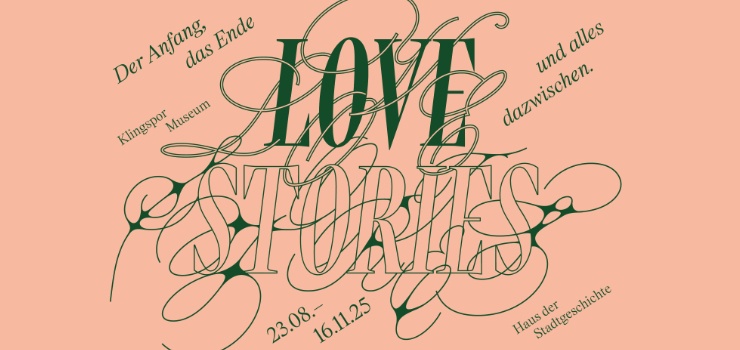 Der Anfang,
das Ende
und alles
dazwischen.
Klingspor
Museum
LOVE
STORIES
23.08.–
16.11.25
Haus der
Stadtgeschichte